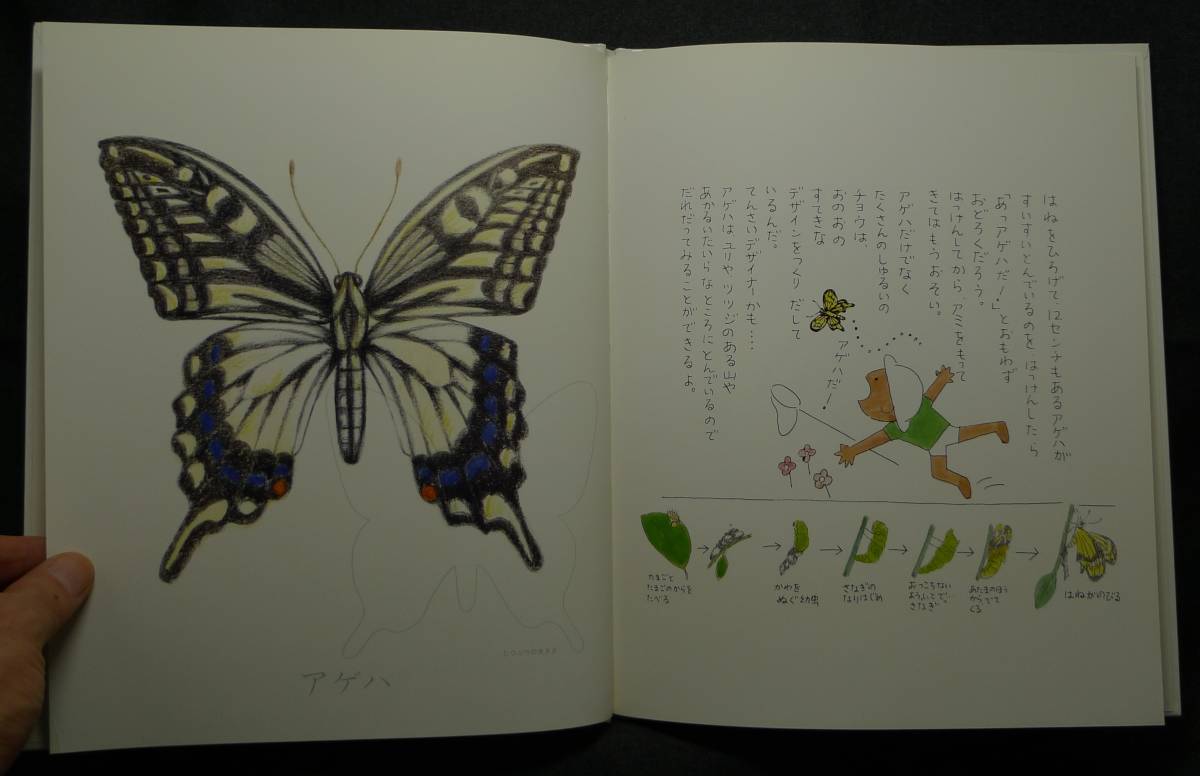 アゲハ
じつぶつの大きさ
はねをひろげて、12センチもあるアゲハが
すいすいとんでいるのを はっけんしたら
「あっアゲハだー。」とおもわず
おどろくだろう。
はっけんしてから アミをもって
きてはもうおそい。
アゲハだけでなく
たくさんのしゅるいの
チョウは、
おのおの
すてきな
デザインをつくり だして
いるんだ。
てんさいデザイナーかも……
アゲハは ユリや ツツジのある山や
あかるいたいらなところにとんでいるので
だれだってみることができるよ。
アゲハだー!
たまごと
たまごのからを
たべる
かわを
ぬぐ幼虫
さなぎの
なりはじめ
おっこちない
ようふしてで。
さなぎ
あたまのほう
からでて
くる
はねがのびる